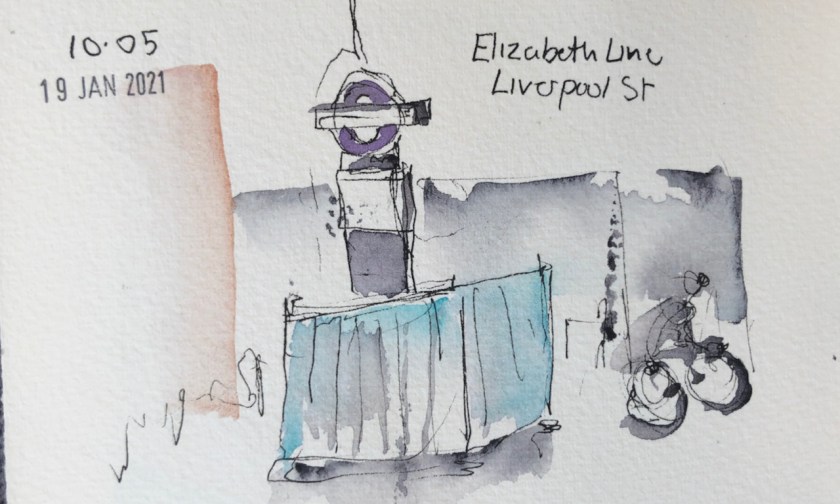 10.05
19 JAN 2021
Elizabeth Line
Liverpool St